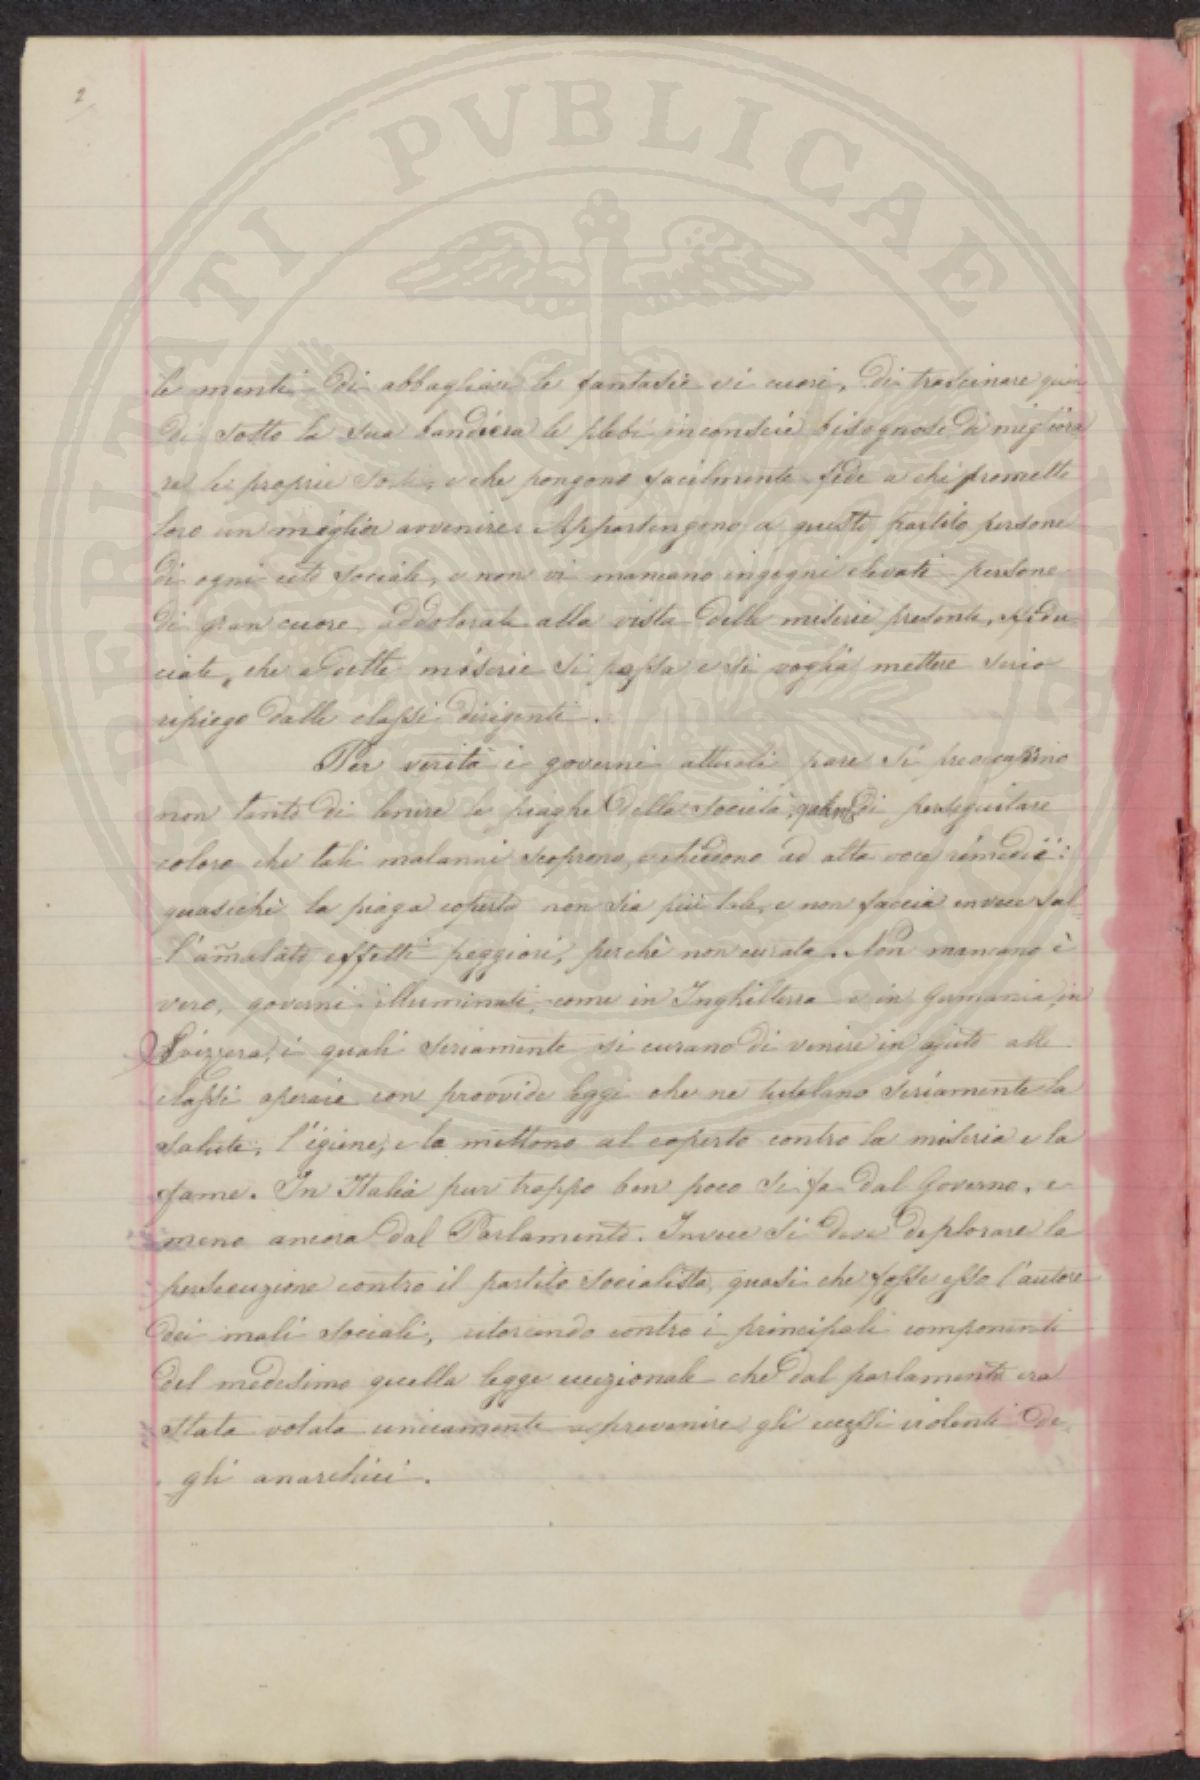 2
PROSPERITATI PVBLICAE
le menti di abbagliare le fantasie e i cuori, di trascinare quin
di sotto la sua bandiera le plebi inconscie bisognose di migliora
re le proprie sorti, e che pongono facilmente fede a chi promette
loro un miglior avvenire. Appartengono a questo partito persone
di ogni ceto sociale, e non vi mancano ingegni elevati persone
di gran cuore addolorate alla vista delle miserie presenti, sfidu
ciate, che a dette miserie si possa e si voglia mettere serio
ripiego dalle classi dirigenti.
Per verità i governi attuali pare si preoccupino
non tanto di lenire le piaghe della società, quanto di perseguitare
coloro che tali malanni scoprono, e chiedono ad alta voce rimedii:
quasichè la piaga coperta non sia più tale, e non faccia invece sul
l'amalato effetti peggiori, perchè non curata. Non mancano è
vero, governi illuminati, come in Inghilterra e in Germania, in
Svizzera, i quali seriamente si curano di venire in ajuto alle
classi operaie con provvide leggi che ne tutelano seriamente la
salute, l'igiene, e la mettono al coperto contro la miseria e la
fame. In Italia pur troppo ben poco si fa dal Governo, e
meno ancora dal Parlamento. Invece si deve deplorare la
persecuzione contro il partito socialista, quasi che fosse esso l'autore
dei mali sociali, ritorcendo contro i principali componenti
del medesimo quella legge eccezionale che dal parlamento era
stata votata unicamente a prevenire gli eccessi violenti de
gli anarchici.